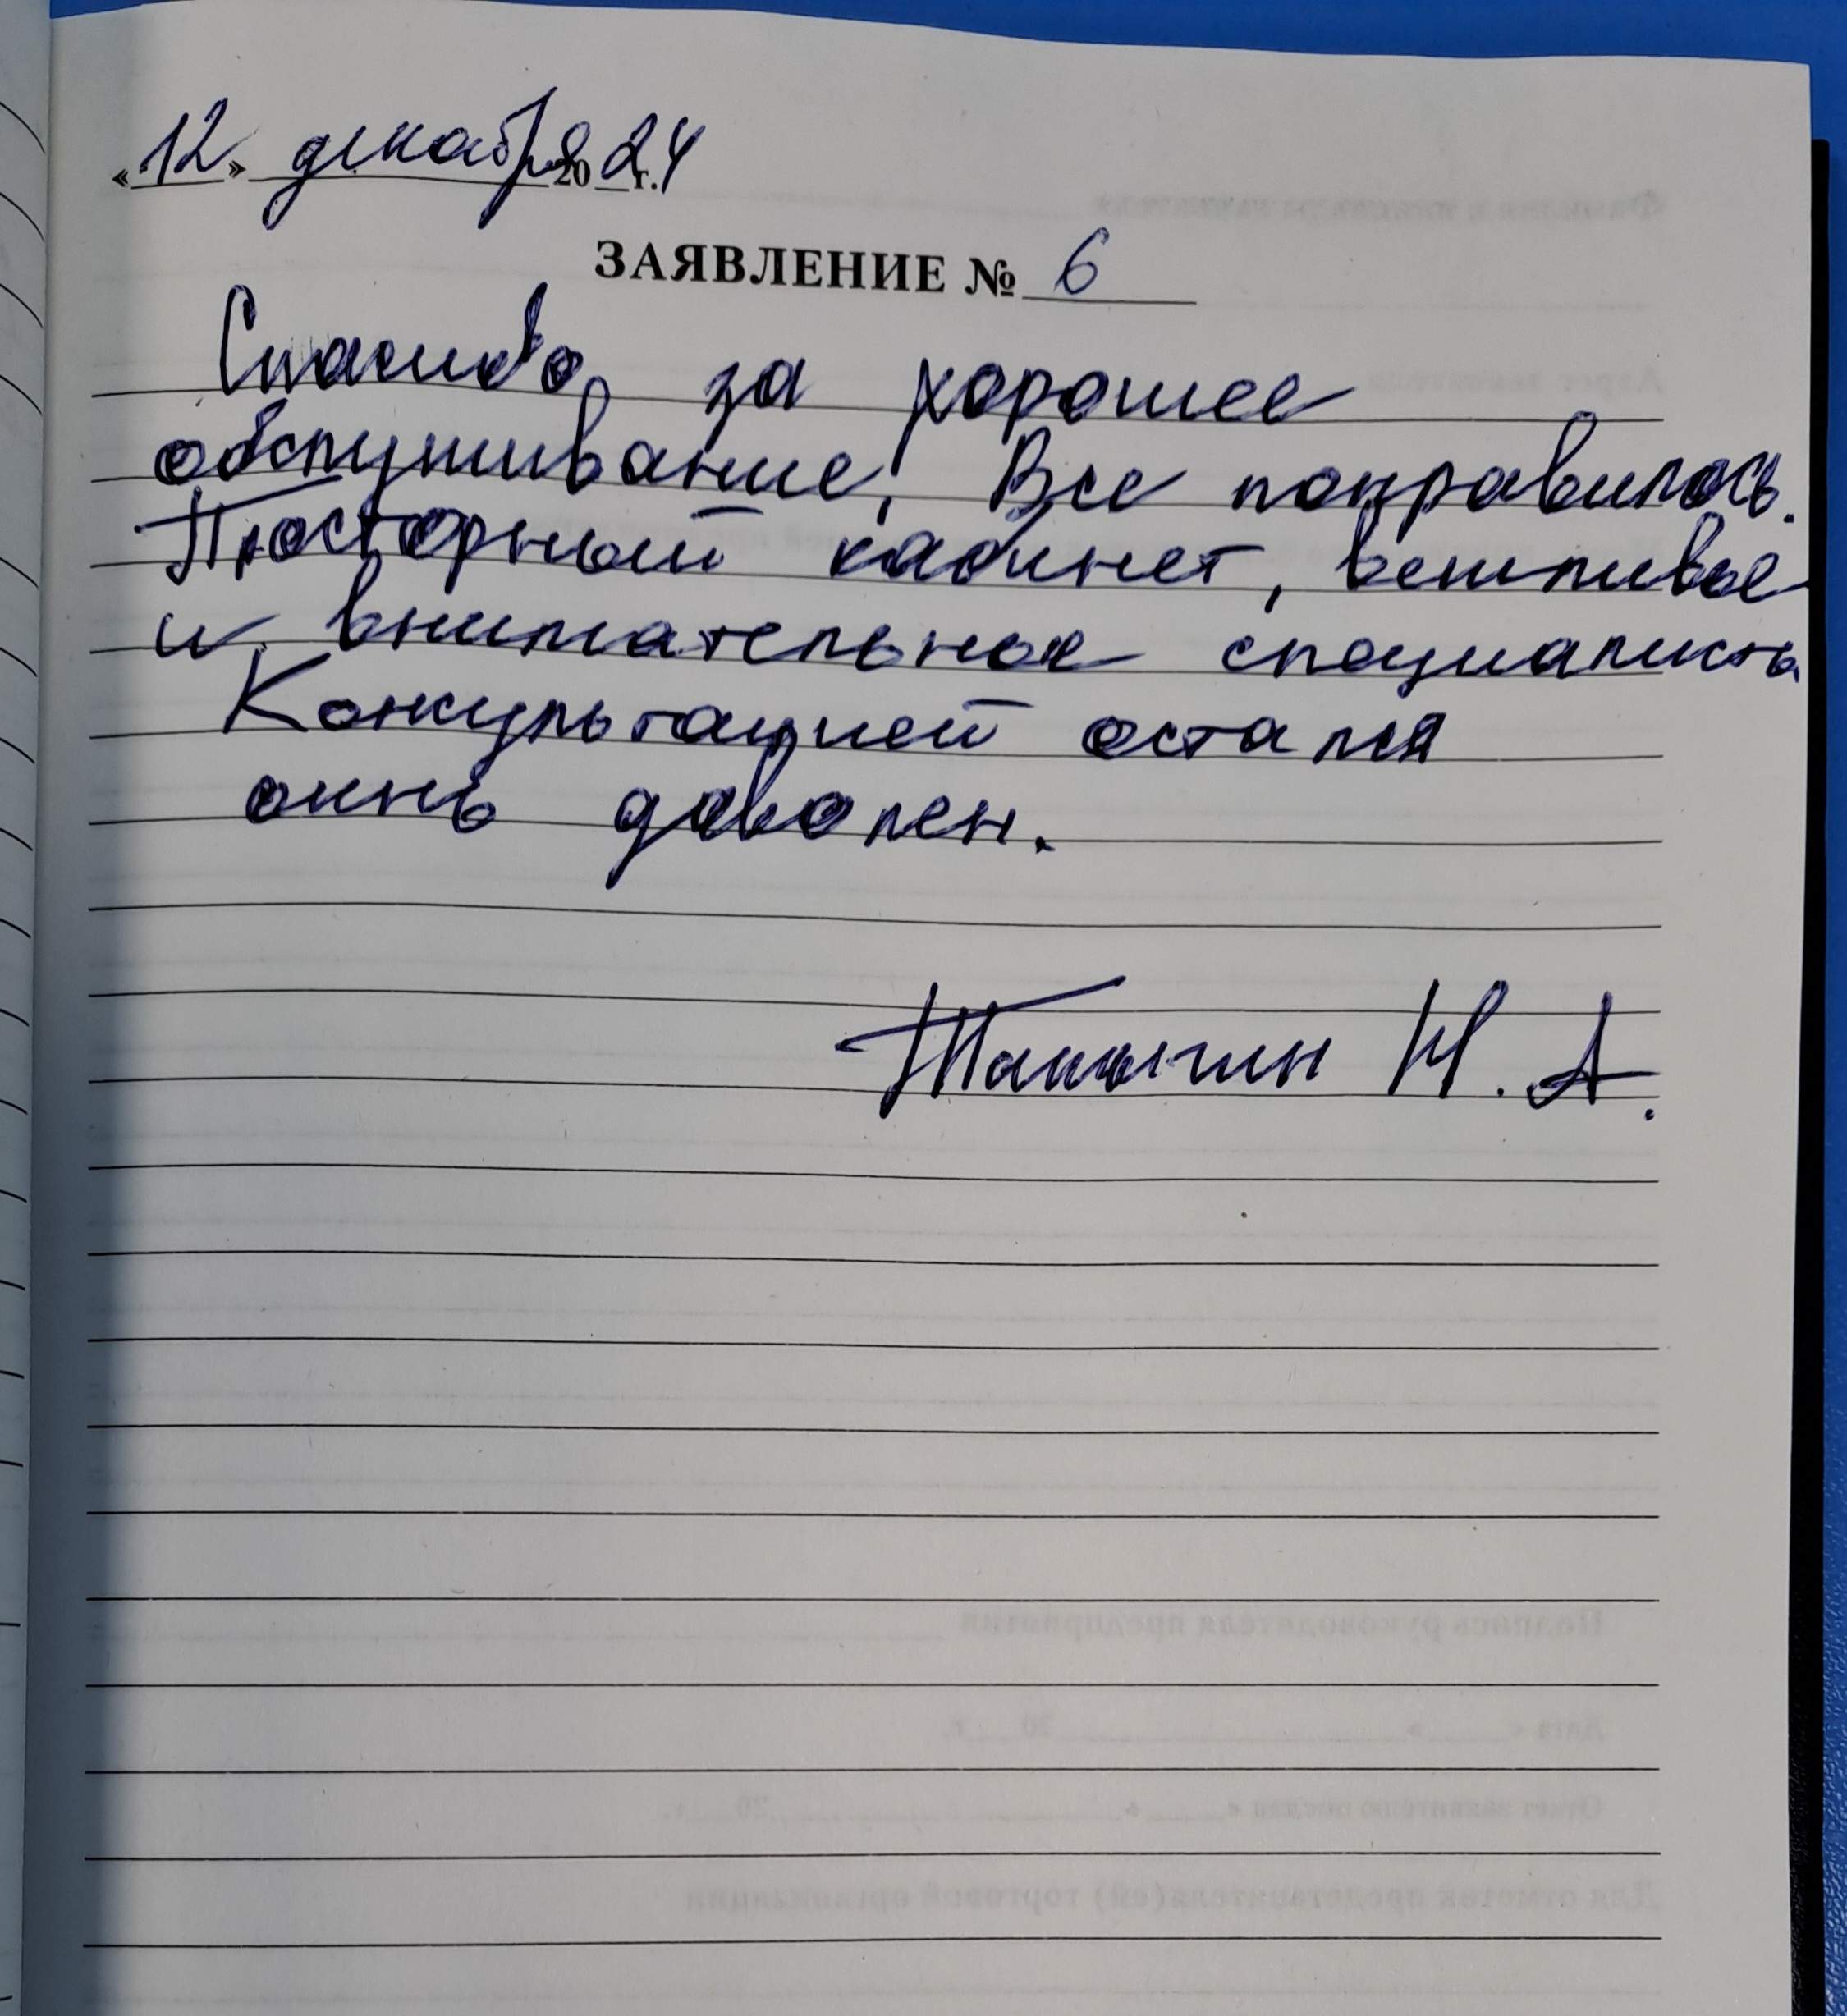 «12» декабря 2024 г.
ЗАЯВЛЕНИЕ № 6
Спасибо за хорошее
обслуживание! Все понравилось.
Просторный кабинет, вежливые
и внимательные специалисты
Консультацией остался
очень доволен.
Н. А.